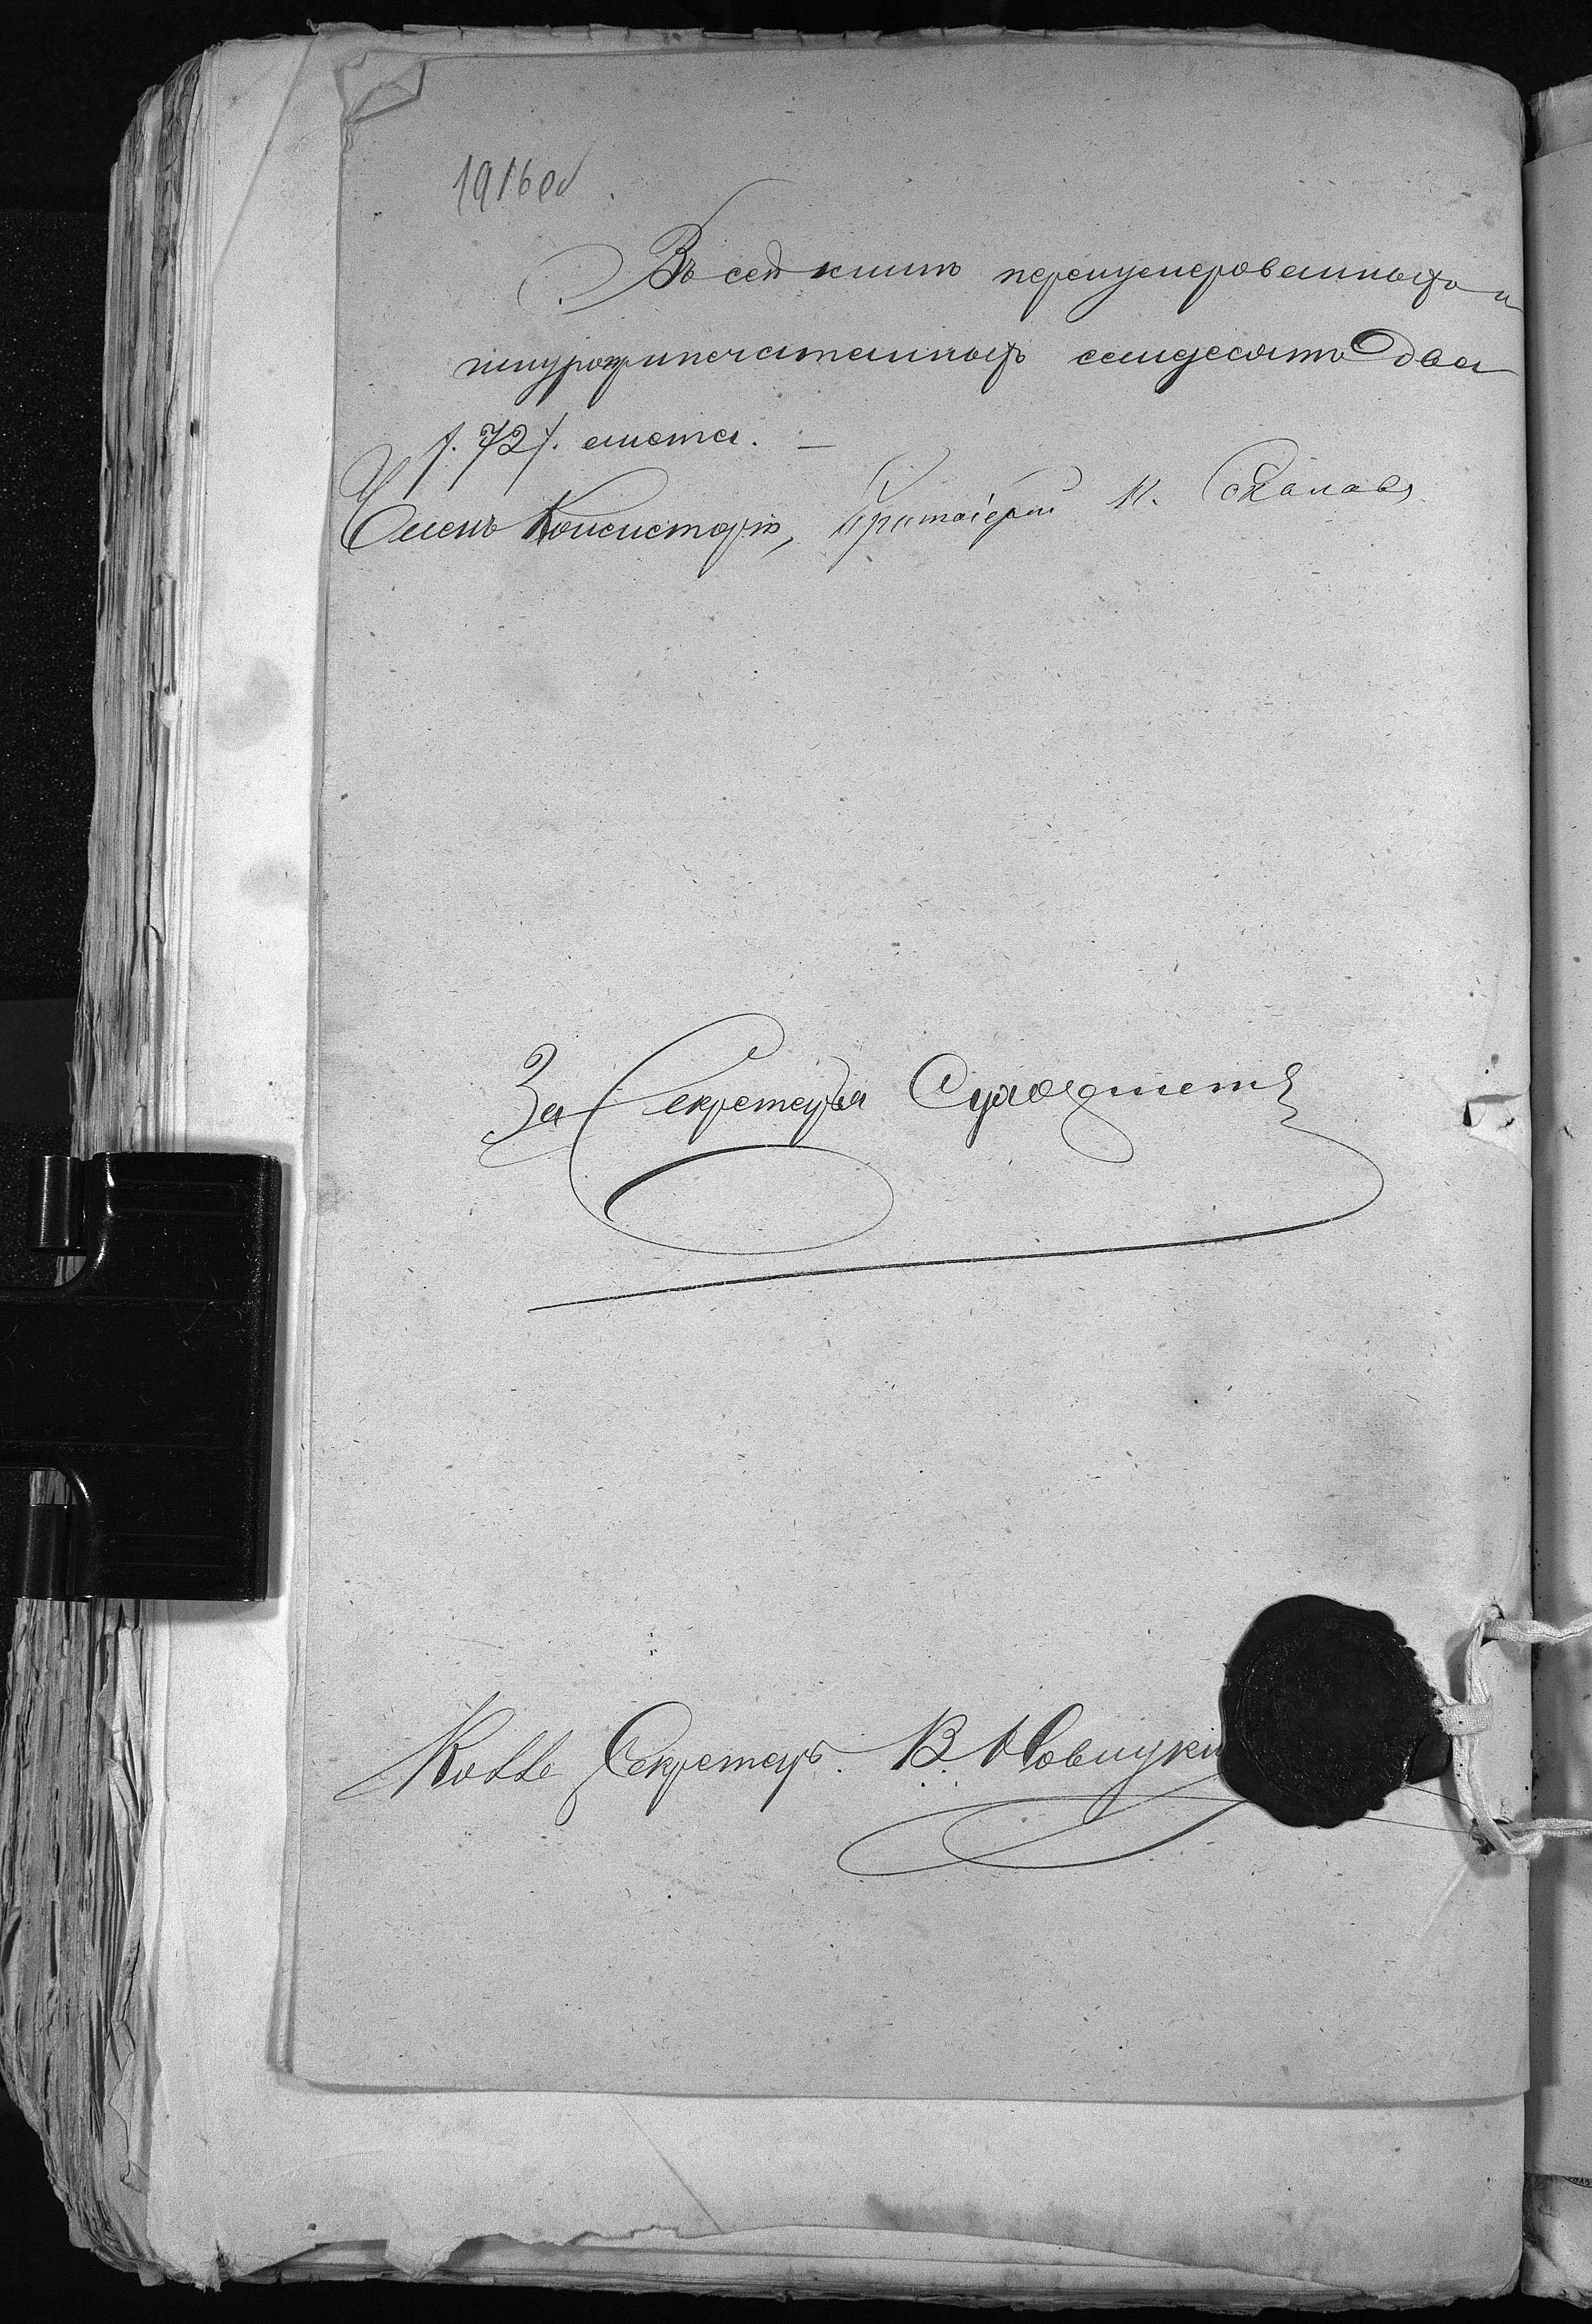 1916 об
Въ сей книгѣ перенумерованныхъ и
шнуроприпечатанныхъ семдесятъ два
/. 72 /. листа. —
Членъ Консисторіи, Протоіерей
За Секретаря
Колл. Секретарь В. Новицкій